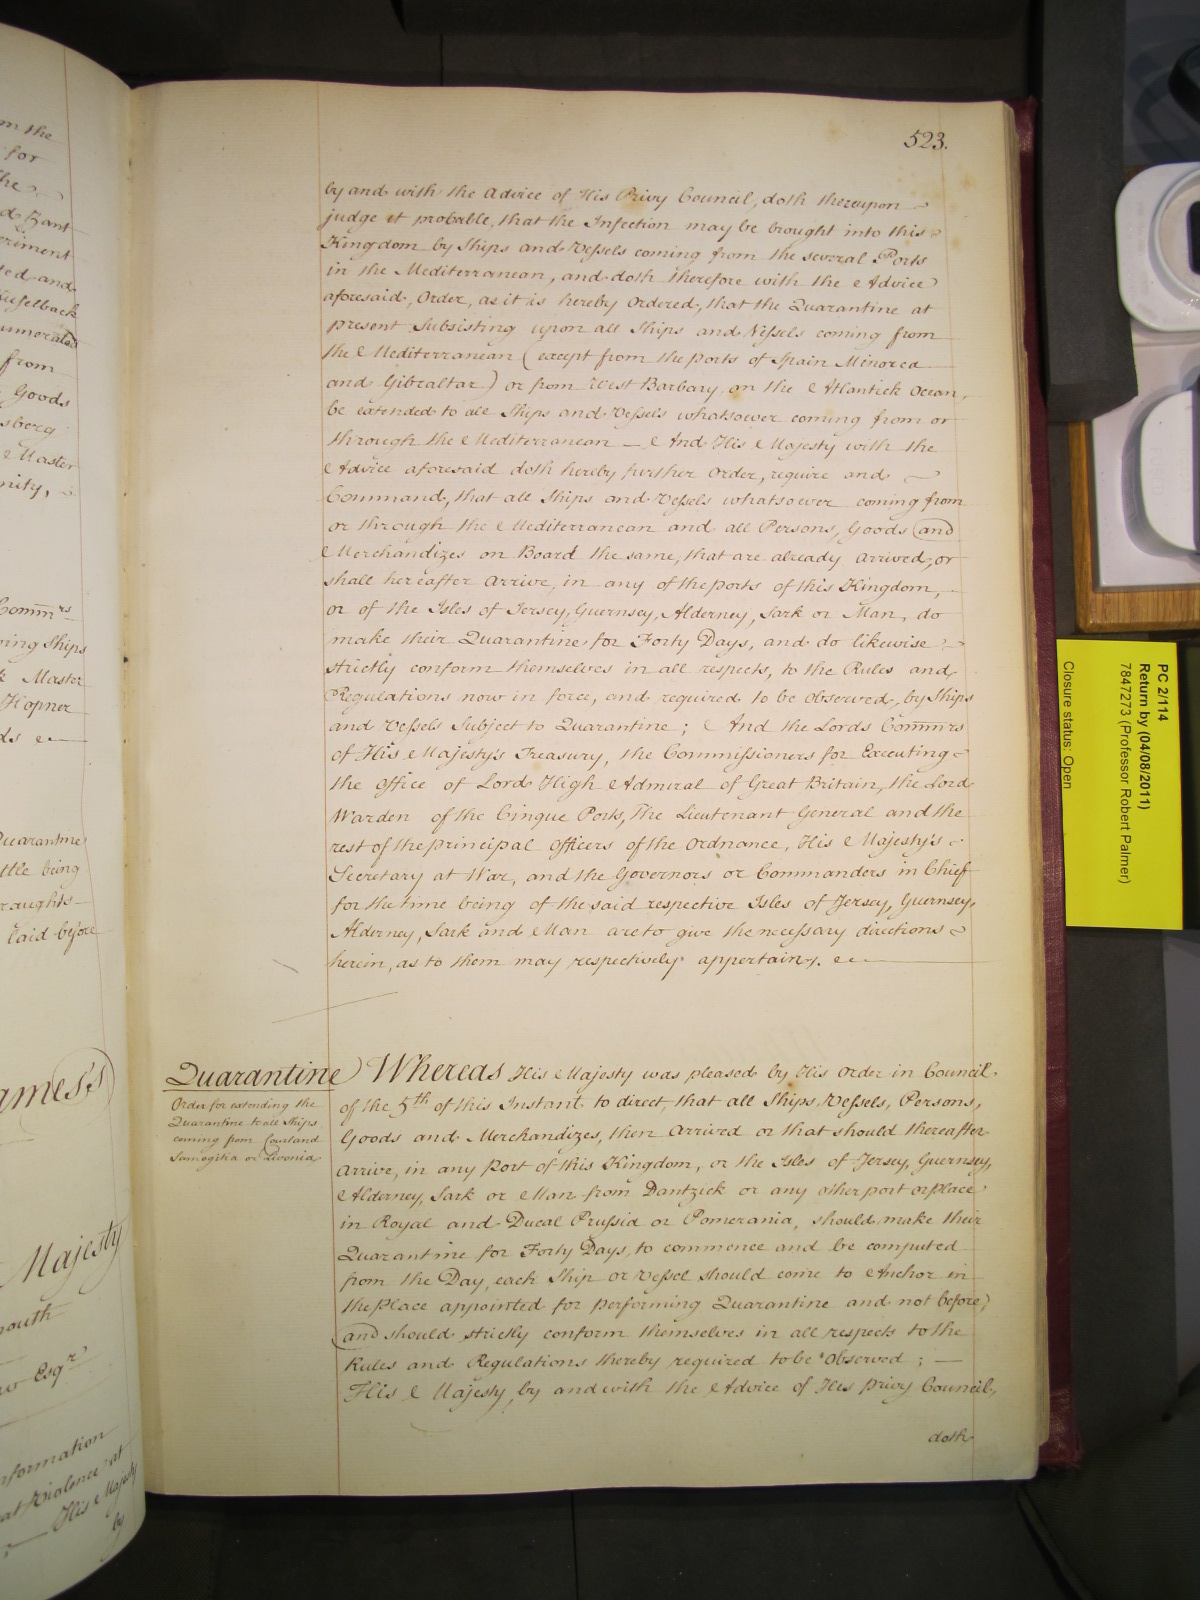 m the
for
the
d Zant
eriment
ted and
unnerated
from
Goods
sberg
Master
nity,
Comm̅rs
ning Ships
Master
Hopner
ds
Quarantine
ttle being
raughts
laid before
ames's
Majesty
mouth
Esqr
nformation
at Violence at
His Majesty
by
523.
by and with the Advice of His Privy Council, doth thereupon
judge it probable, that the Infection may be brought into this
Kingdom by Ships and Vessels coming from the several Ports
in the Mediterranean, and doth therefore with the Advice
aforesaid, Order, as it is hereby Ordered, that the Quarantine at
present Subsisting upon all Ships and Vessels coming from
the Mediterranean (except from the ports of Spain Minorca
and Gibraltar) or from West Barbary, on the Atlantick Ocean,
be extended to all Ships and Vessels whatsoever coming from or
through the Mediterranean — And His Majesty with the
Advice aforesaid doth hereby further Order, require and
Command, that all Ships and Vessels whatsoever coming from
or through the Mediterranean and all Persons, Goods and
Merchandizes on Board the same, that are already arrived, or
shall hereafter arrive, in any of the ports of this Kingdom,
or of the Isles of Jersey, Guernsey, Alderney, Sark or Man, do
make their Quarantine for Forty Days, and do likewise
strictly conform themselves in all respects, to the Rules and
Regulations now in force, and required to be observed, by Ships
and Vessels Subject to Quarantine; And the Lords Comm̅rs
of His Majesty's Treasury, the Commissioners for Executing
the Office of Lord High Admiral of Great Britain, the Lord
Warden of the Cinque Ports, The Lieutenant General and the
rest of the principal Officers of the Ordnance, His Majesty's
Secretary at War, and the Governors or Commanders in Chief
for the time being of the said respective Isles of Jersey, Guernsey,
Alderney, Sark and Man are to give the necessary directions
herein, as to them may respectively appertain.
Quarantine
Order for extending the
Quarantine to all Ships
coming from Courland
Samogitia or Livonia
Whereas His Majesty was pleased by His Order in Council
of the 5th of this Instant to direct, that all Ships, Vessels, Persons,
Goods and Merchandizes, then Arrived or that should thereafter
Arrive, in any Port of this Kingdom, or the Isles of Jersey, Guernsey,
Alderney, Sark or Man from Dantzick or any other port or place
in Royal and Ducal Prussia or Pomerania, should make their
Quarantine for Forty Days, to commence and be computed
from the Day, each Ship or Vessel should come to Anchor in
the Place appointed for performing Quarantine and not before,
and should strictly conform themselves in all respects to the
Rules and Regulations thereby required to be Observed; —
His Majesty, by and with the Advice of His Privy Council,
doth
PC 2/114
Return by (04/08/2011)
7847273 (Professor Robert Palmer)
Closure status: Open